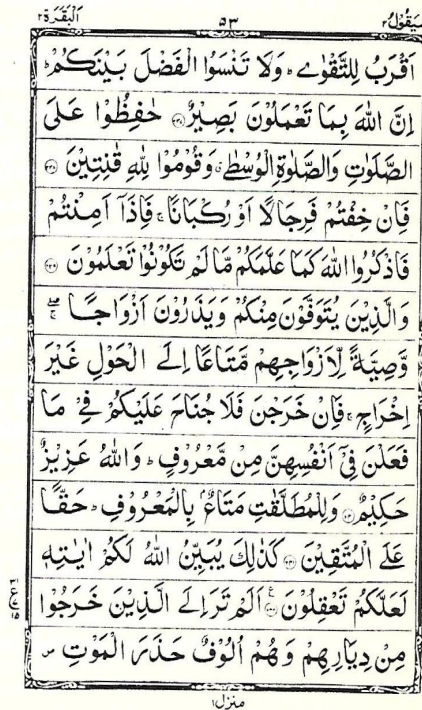 سيقول٢ ٥٣ البقرة٢
اَقْرَبُ لِلتَّقْوٰے ؕ وَلَا تَنْسَوُا الْفَضْلَ بَيْنَكُمْ ؕ
اِنَّ اللّٰهَ بِمَا تَعْمَلُوْنَ بَصِيْرٌ حٰفِظُوْا عَلَى
الصَّلَوٰتِ وَالصَّلٰوةِ الْوُسْطٰى وَقُوْمُوْا لِلّٰهِ قٰنِتِيْنَ
فَاِنْ خِفْتُمْ فَرِجَالًا اَوْ رُكْبَانًا ۚ فَاِذَاۤ اَمِنْتُمْ
فَاذْكُرُوا اللّٰهَ كَمَا عَلَّمَكُمْ مَّا لَمْ تَكُوْنُوْا تَعْلَمُوْنَ
وَالَّذِيْنَ يُتَوَفَّوْنَ مِنْكُمْ وَيَذَرُوْنَ اَزْوَاجًا
وَّصِيَّةً لِّاَزْوَاجِهِمْ مَّتَاعًا اِلَى الْحَوْلِ غَيْرَ
اِخْرَاجٍ ۚ فَاِنْ خَرَجْنَ فَلَا جُنَاحَ عَلَيْكُمْ فِىْ مَا
فَعَلْنَ فِىْۤ اَنْفُسِهِنَّ مِنْ مَّعْرُوْفٍ ؕ وَاللّٰهُ عَزِيْزٌ
حَكِيْمٌ وَلِلْمُطَلَّقٰتِ مَتَاعٌۢ بِالْمَعْرُوْفِ ؕ حَقًّا
عَلَى الْمُتَّقِيْنَ كَذٰلِكَ يُبَيِّنُ اللّٰهُ لَكُمْ اٰيٰتِهٖ
لَعَلَّكُمْ تَعْقِلُوْنَ اَلَمْ تَرَ اِلَى الَّذِيْنَ خَرَجُوْا
مِنْ دِيَارِهِمْ وَهُمْ اُلُوْفٌ حَذَرَ الْمَوْتِ
منزل١